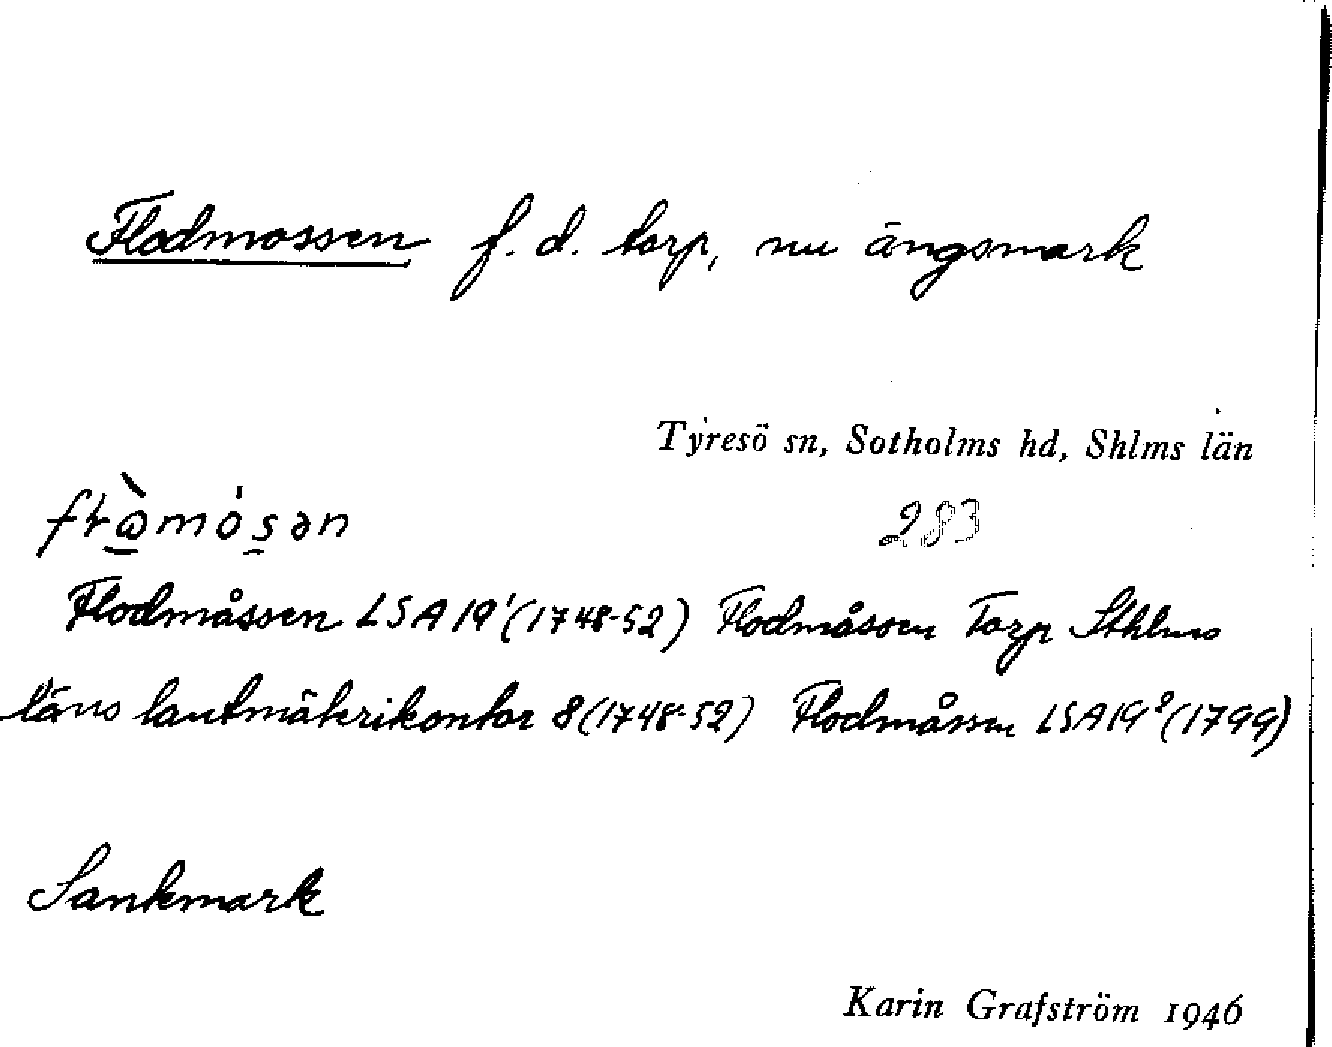 Flodmossen f. d. torp, nu ängsmark
Tyresö sn, Sotholms hd, Shlms län
283
Flodmåssen LSA 19¹ (1748-52) Flodmåssen Torp Sthlms
läns lantmäterikontor 8 (1748-52) Flodmåssen LSA 19² (1799)
Sankmark
Karin Grafström 1946